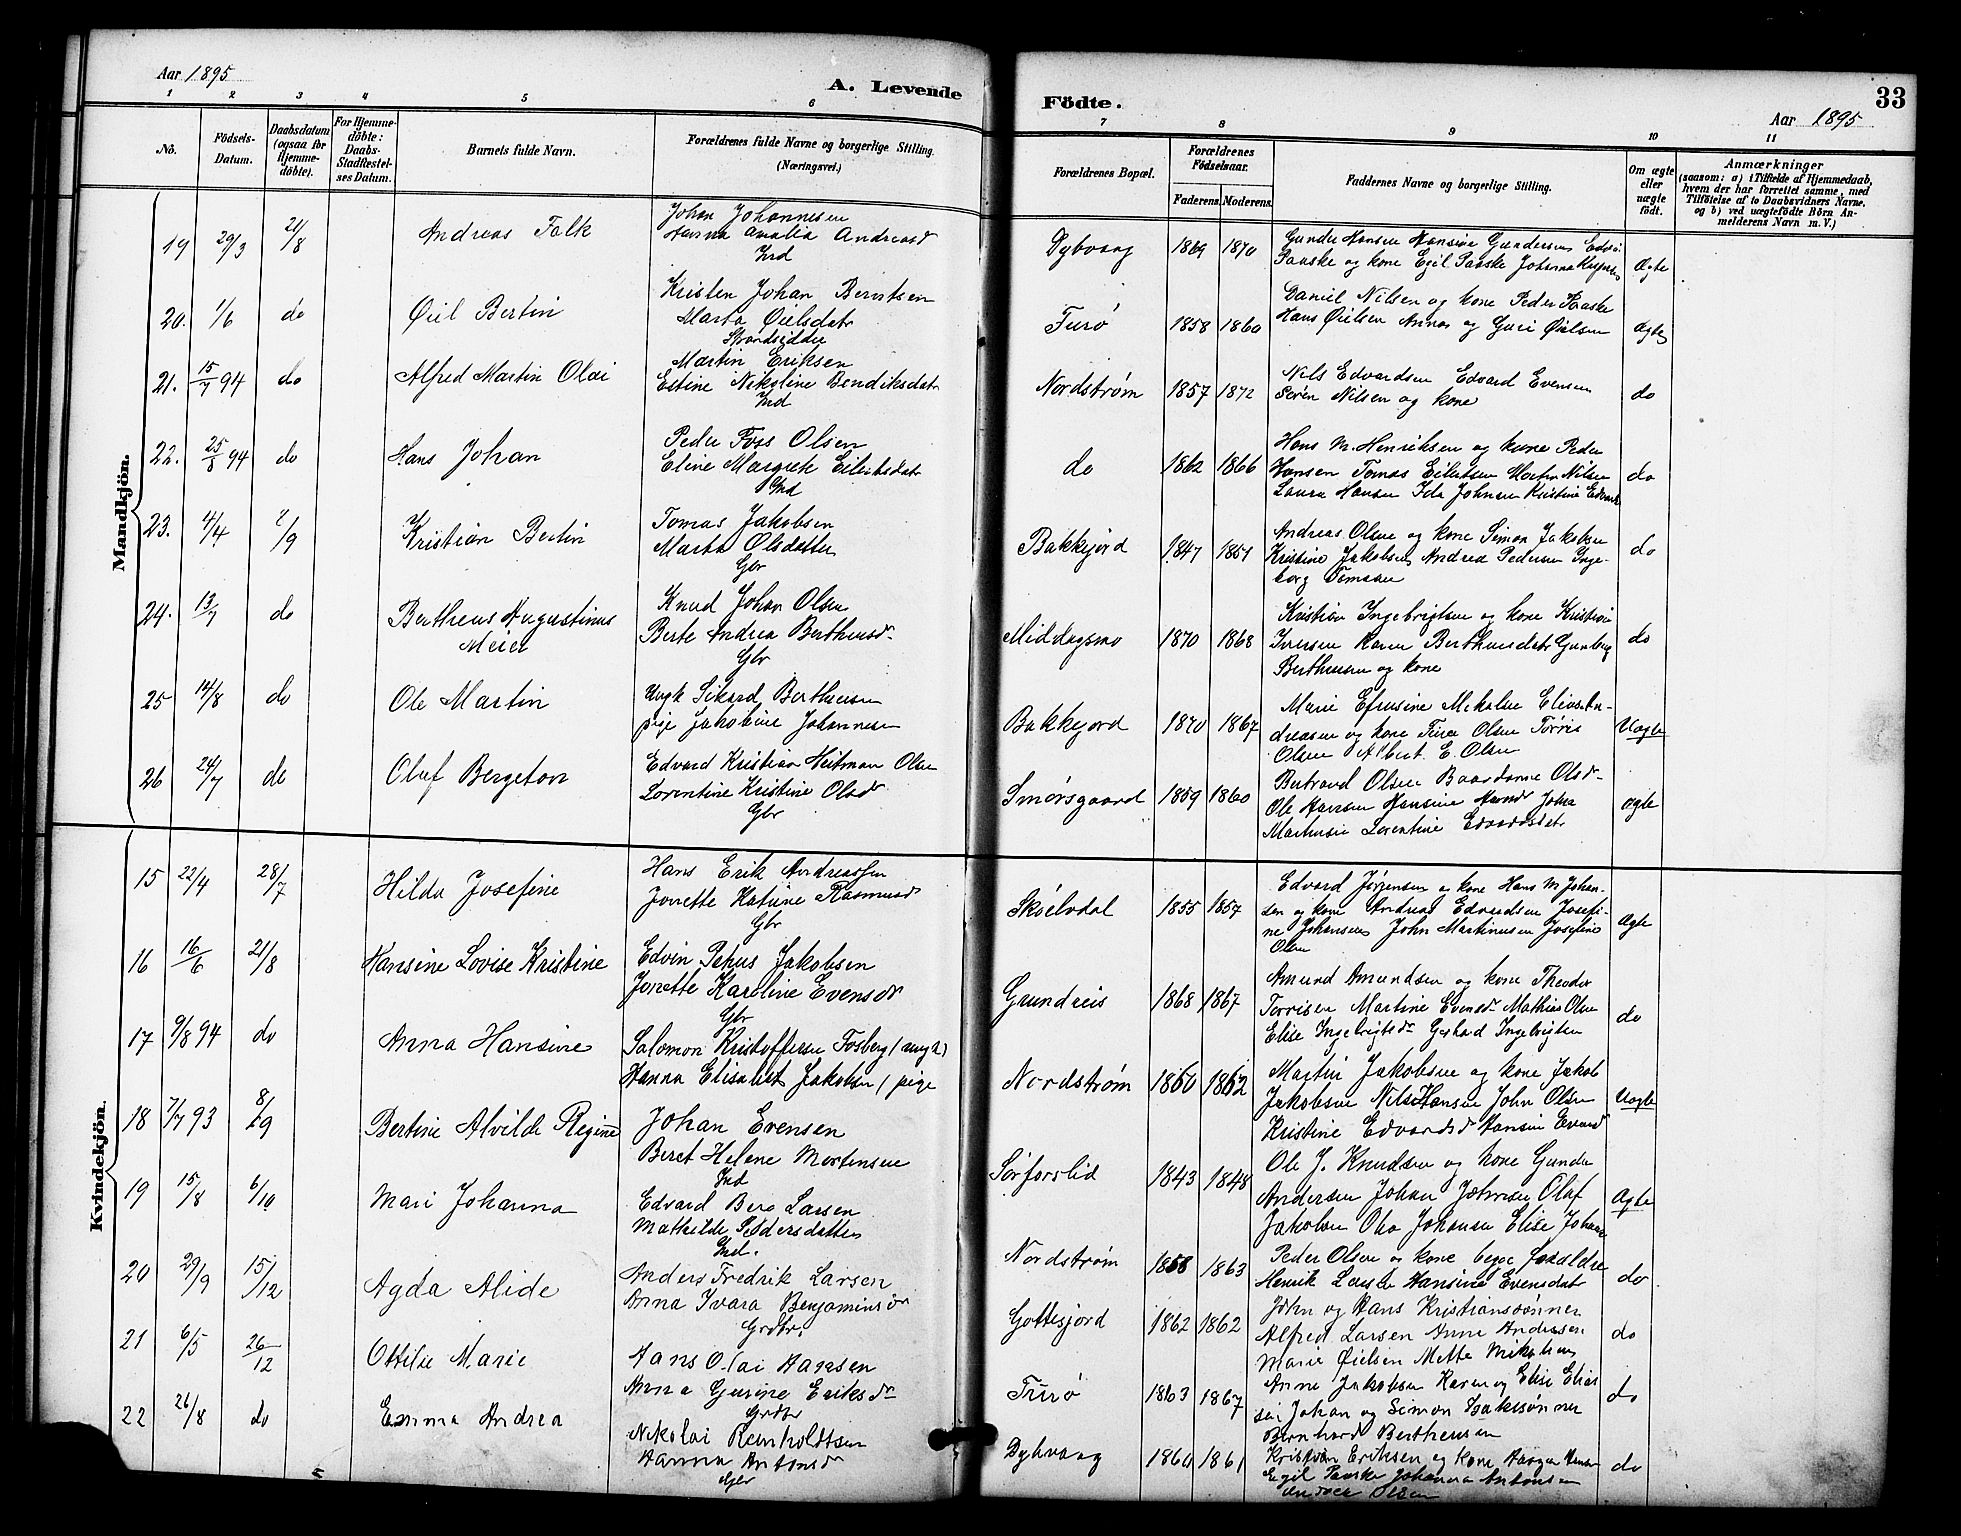 Aar 1895
A. Levende
1 2 3 4 5 6
No.
Födsels-Datum.
Daabsdatum (ogsaa for Hjemme-döbte).
For Hjemme-döbte: Daabs-Stadfæstel-ses Datum.
Barnets fulde Navn.
Forældrenes fulde Navne og borgerlige Stilling. (Næringsvei.)
Mandkjön.
19 29/3 21/8 Andreas Falk
Johan Johannesen
Hanna Analia Andreasd
Ind
20. 1/6 do Øiel Bertin
Kristen Johan Berntsen
Marta Øielsdatr
Strandsidder
21. 15/7 94 do Alfred Martin Olai
Martin Eriksen
Estine Nikoline Bendiksdatr
Ind
22. 25/8 94 do Hans Johan
Peder Foss Olsen
Eline Margrete Eilertsdatr
Ind
23. 4/4 2/9 Kristian Bertin
Tomas Jakobsen
Marta Olsdatter
Gbr
24. 13/7 do Bertheus Augustinus
Meier
Knud Johan Olsen
Berte Andrea Bertheusdr
Gbr
25 14/8 do Ole Martin
Ungk Sikard Bertheusen
pige Jakobine Johannesen
26 24/7 do Oluf Bergeton
Edvard Kristian Heitman Olsen
Lorentine Kristine Olsdr
Gbr
Kvindekjön.
15 22/4 28/7 Hilda Josefine
Hans Erik Andreassen
Jonette Katrine Rasmusdr
Gbr
16 16/6 21/8 Hansine Lovise Kristine
Edvin Petrus Jakobsen
Jonette Karoline Evensdr
Gbr
17 9/8 94 do Anna Hansine
Salomon Kristoffersen Fosberg (ungk)
Hanna Elisabet Jakobsen (pige
18 7/7 93 8/9 Bertine Alvilde Regine
Johan Evensen
Beret Helene Mortensen
Ind
19 15/8 6/10 Mari Johanna
Edvard Berg Larsen
Mathilde Pedersdatter
Ind.
20 29/9 15/12 Agda Alide
Anders Fredrik Larsen
Anna Ivara Benjaminsdr
Grdbr.
21 6/5 26/12 Ottilie Marie
Hans Olai Hansen
Anna Gurine Eriksdr
Grdbr
22 26/8 do Emma Andrea
Nikolai Reinholdtsen
Hanna Antonsdr
Gbr
Födte.
33
Aar 1895
7 8 9 10 11
Forældrenes Bopæl.
Forældrenes Födselsaar.
Faderens. Moderens.
Faddernes Navne og borgerlige Stilling.
Om ægte eller uægte födt.
Anmærkninger
(saasom: a) i Tilfælde af Hjemmedaab,
hvem der har forrettet samme, med
Tilföielse af to Daabsvidners Navne,
og b) ved uægtefödte Börn An-
melderens Navn m. V.)
Dybvaag 1869 1870
Gunder Hansen Hansine Gundersen
Paaske og kone Egil Paaske Johanna
Ægte
Furø 1858 1860
Daniel Nilsen og kone Peder
Hans Øielsen Annas og Guri Øielsen
Ægte
Nordstrøm 1857 1872
Nils Edvardsen Edvard Evensen
Sören Nilsen og kone
do
do 1862 1866
Hans M. Henriksen og kone Peder
Hansen Tomas Eilertsen Morten Nilsen
Laura Hansen Ida Johnsen Kristine
do
Bakkejord 1847 1851
Andreas Olsen og kone Simon Jakobsen
Kristine Jakobsen Andrea Pedersen Inge-
borg Tomsen
do
Middagsmo 1870 1868
Kristian Ingebrigtsen og kone Kristine
Iversen Karen Bertheusdatr
Bertheusen og kone
do
Bakkejord 1870 1867
Marie Efrusine Mikalsen Elias An-
dreasen og kone Tina Olsen Torris
Olsen Albert E. Olsen
Uægte
Smørsgaard 1859 1860
Bertrand Olsen Olsdr
Ole Hansen Hansine Johan
Lorentine Edvardsdatr
ægte
Skoelvdal 1855 1857
Edvard Jörgensen og kone Hans M Johan-
sen og kone Andreas Edvardsen Josefi-
ne Johansen John Martinusen Josefine
Olsen
Ægte
Grundreis 1868 1867
Amund Amundsen og kone Theodor
Torrisen Martine Evensdr Mathias Olsen
Elise Ingebrigtsdr Gerhard Ingebrigtsen
do
Nordstrøm 1860 1862
Martin Jakobsen og kone Jakob
Jakobsen Nils Hansen John Olsen
Kristine Edvardsdr Hansine
Uægte
Sørforslid 1843 1848
Ole J. Knudsen og kone Gunder
Andersen Johan Johnsen Olaf
Jakobsen Johansen Elise
Ægte
Nordstrøm 1858 1863
Peder Olsen og kone begge forældre
Henrik Larsen Hansine Evensdat
do
Gottesjord 1862 1862
John og Hans Kristiansønner
Alfred Larsen Anne Andersen
Marie Øielsen Mette
do
Furø 1863 1867
Anne Jakobsen Karen og Elise Elias
Johan og Simon Isaksønner
Bernhard Bertheusen
do
Dybvaag 1860 1861
Kristian Eriksen og kone
Egil Paaske Johanna Antonsen
Olsen
do